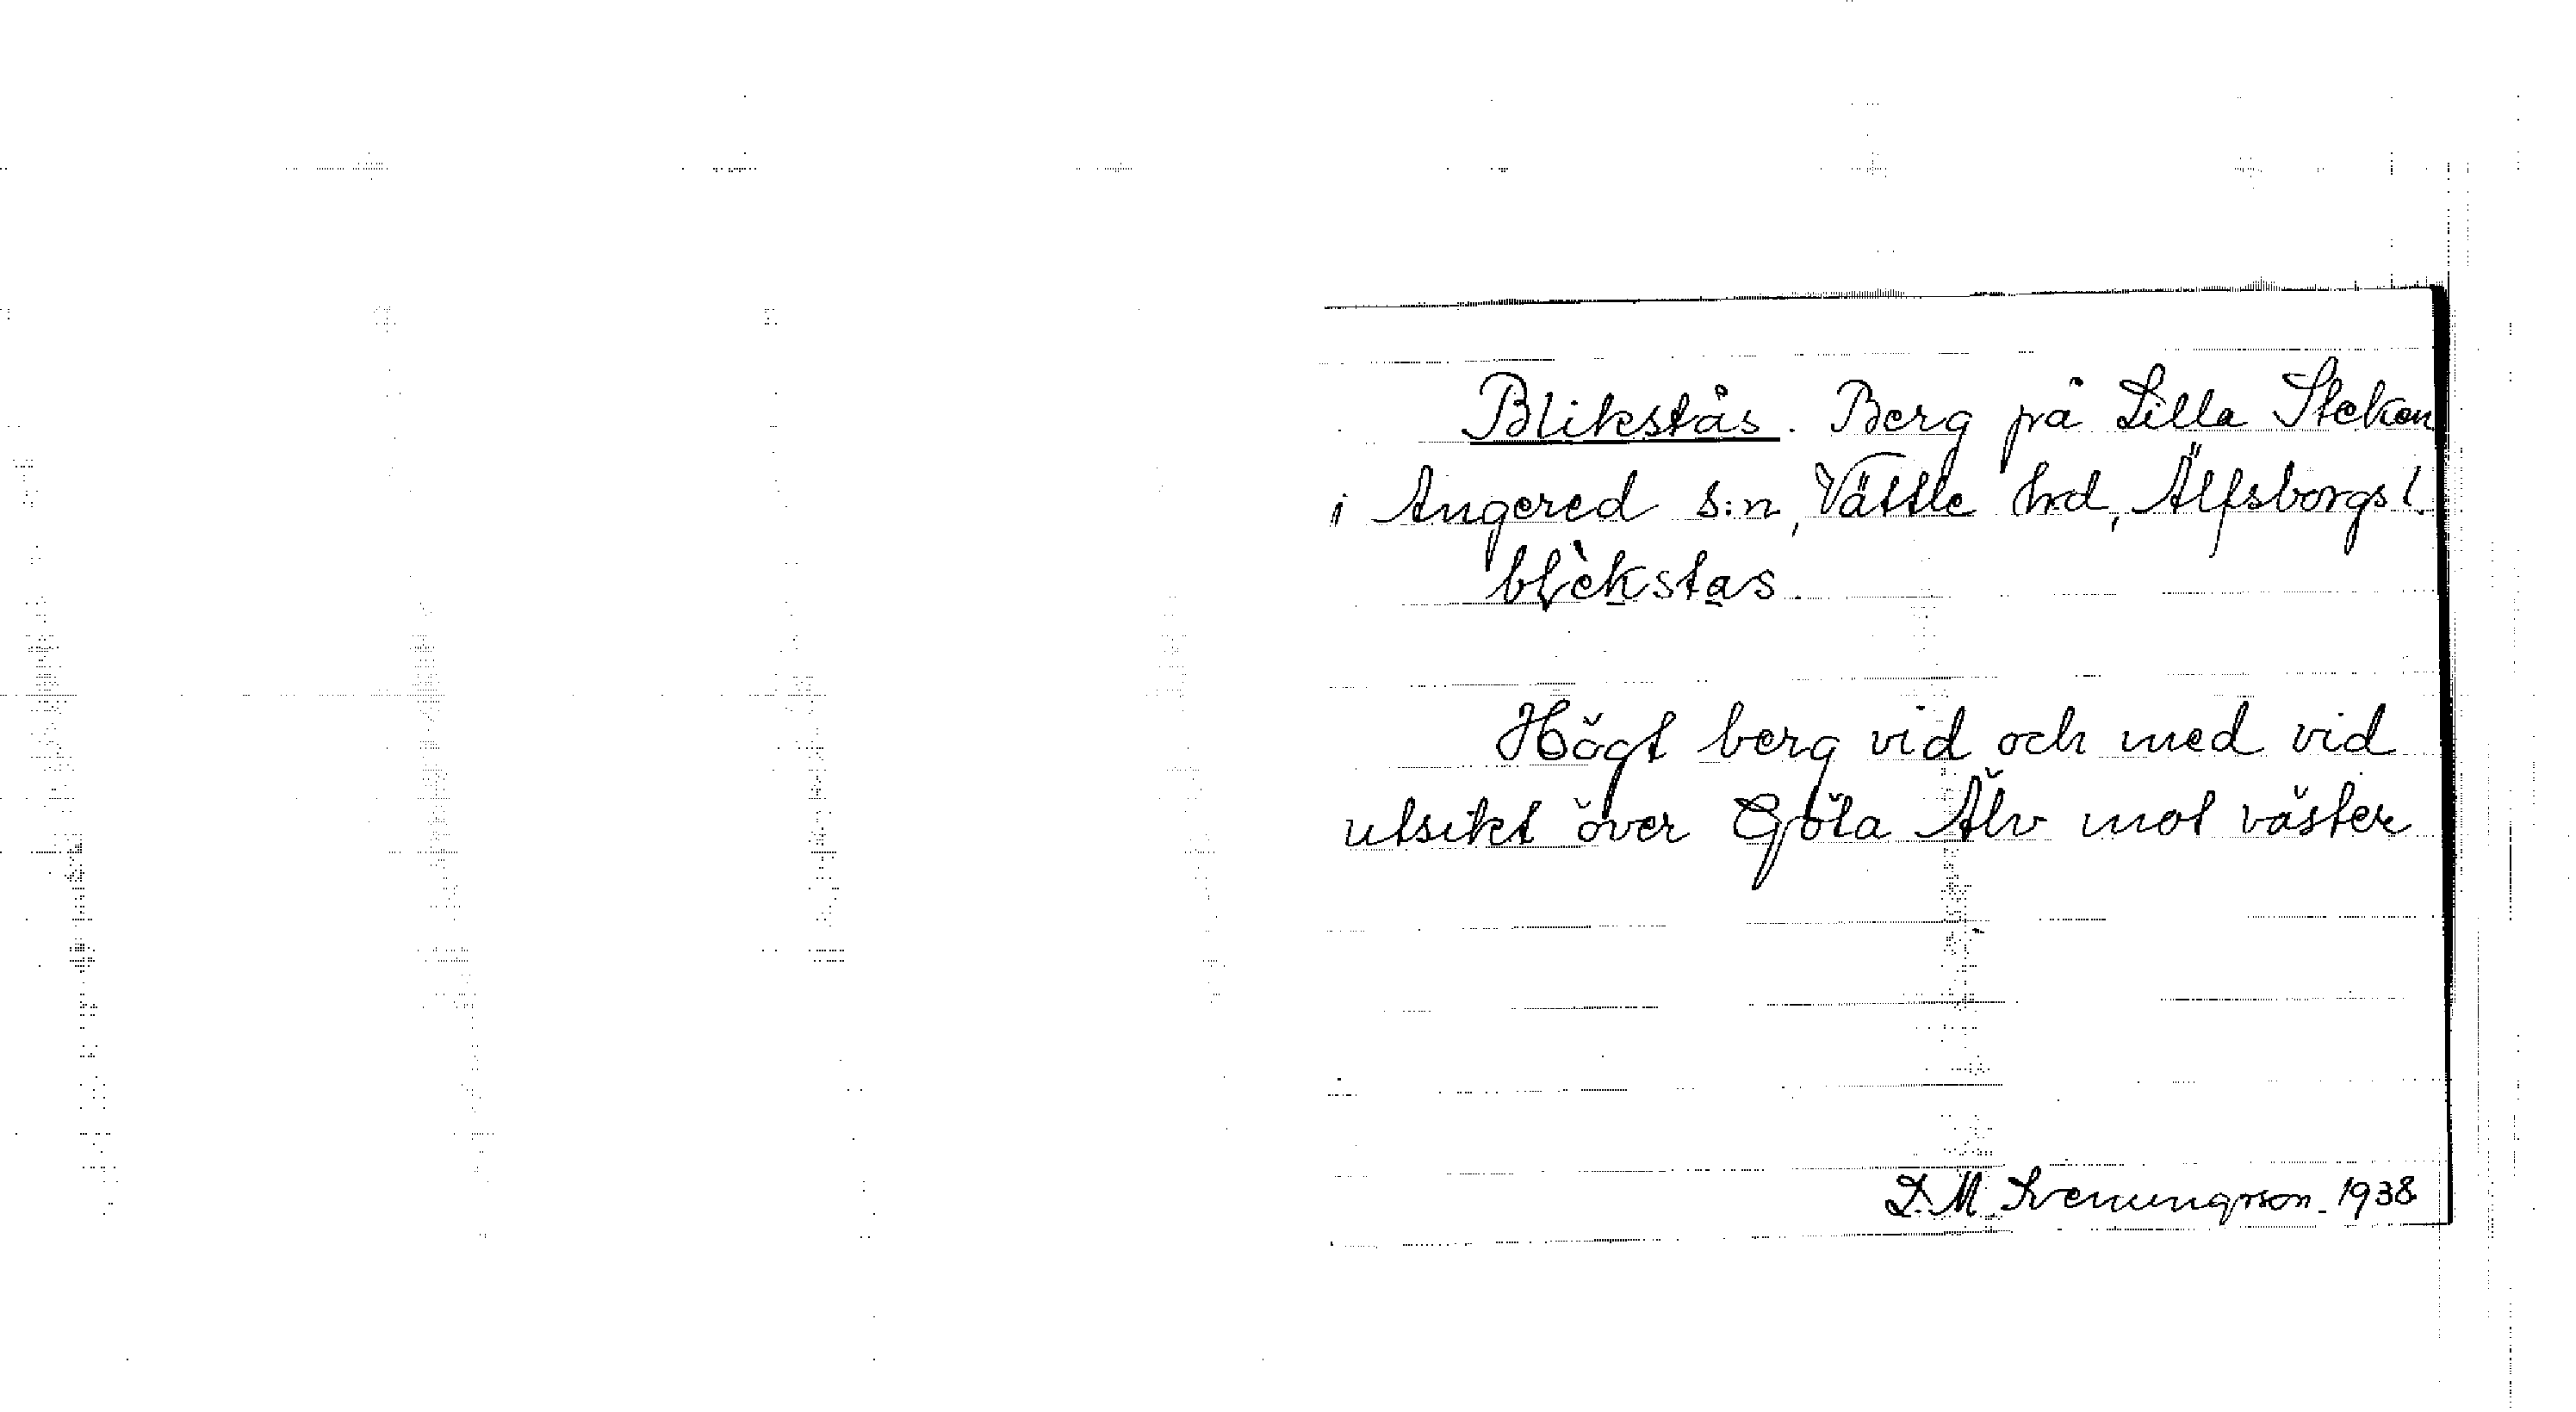 Blikstås. Berg på Lilla Stekan
i Angered s:n, Vättle hd, Älfsborgs l.
blèkstas.
Högt berg vid och med vid
utsikt över Göta Älv mot väster
D. M. Svenungsson. 1938